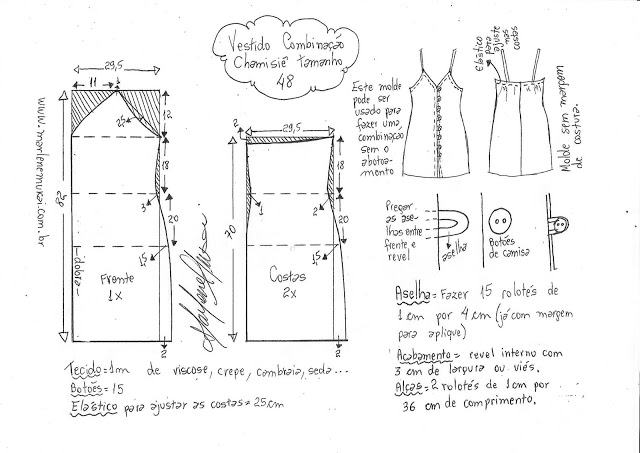 Vestido Combinação
Chamisiê tamanho
48
www.marlenemukai.com.br
29,5
11
3
12
2,5
18
3
20
1,5
82
dobra
Frente
1x
2
2
29,5
18
1
2
20
70
1,5
Costas
2x
2
Elástico
para
ajuste
nas
costas
Este molde
pode ser
usado para
fazer uma
combinação
sem o
abotoa-
mento
Molde sem margem
de costura.
Pregar
as ase-
lhas entre
frente e
revel
aselha
Botões
de camisa
Aselha = Fazer 15 rolotês de
1 cm por 4 cm (já com margem
para aplique)
Acabamento = revel interno com
3 cm de largura ou viés.
Alças = 2 rolotês de 1 cm por
36 cm de comprimento.
Tecido = 1m de viscose, crepe, cambraia, seda...
Botões = 15
Elástico para ajustar as costas = 25 cm